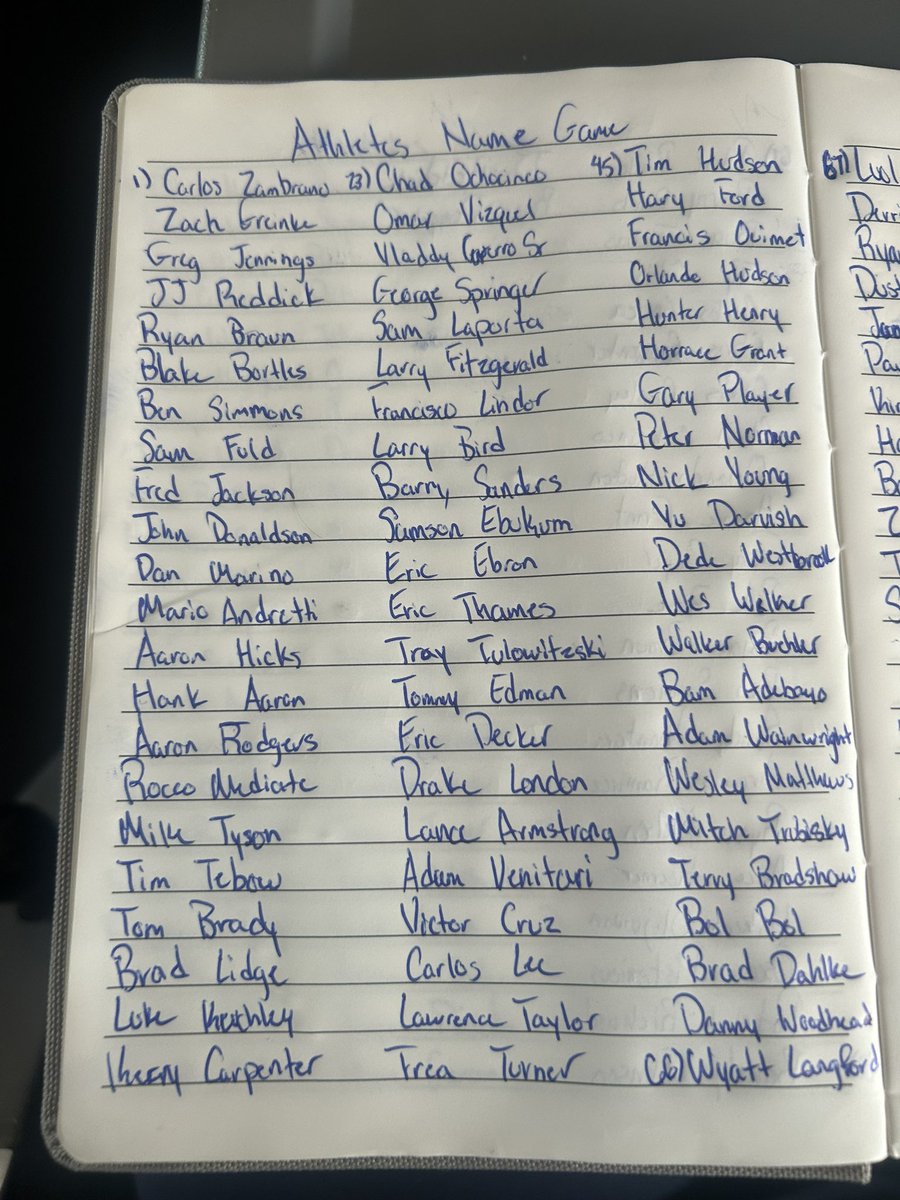 Athletes Name Game
1) Carlos Zambrano
Zach Greinke
Greg Jennings
JJ Reddick
Ryan Braun
Blake Bortles
Ben Simmons
Sam Fuld
Fred Jackson
John Donaldson
Dan Marino
Mario Andretti
Aaron Hicks
Hank Aaron
Aaron Rodgers
Rocco Mediate
Mike Tyson
Tim Tebow
Tom Brady
Brad Lidge
Luke Kuechley
Carpenter
23) Chad Ochocinco
Omar Vizquel
Vladdy Sr
George Springer
Sam Laporta
Larry Fitzgerald
Francisco Lindor
Larry Bird
Barry Sanders
Samson Ebukum
Eric Ebron
Eric Thames
Troy Tulowitzski
Tommy Edman
Eric Decker
Drake London
Lance Armstrong
Adam Venitari
Victor Cruz
Carlos Lee
Lawrence Taylor
Trea Turner
45) Tim Hudson
Hary Ford
Francis Ouimet
Orlando Hudson
Hunter Henry
Horrace Grant
Gary Player
Peter Norman
Nick Young
Yu Darvish
Dede Westbrook
Wes Welker
Walker Buehler
Bam Adebayo
Adam Wainwright
Wesley Matthews
Mitch Trubisky
Terry Bradshaw
Bol Bol
Brad Dahlke
Danny Woodhead
66) Wyatt Langford
67)